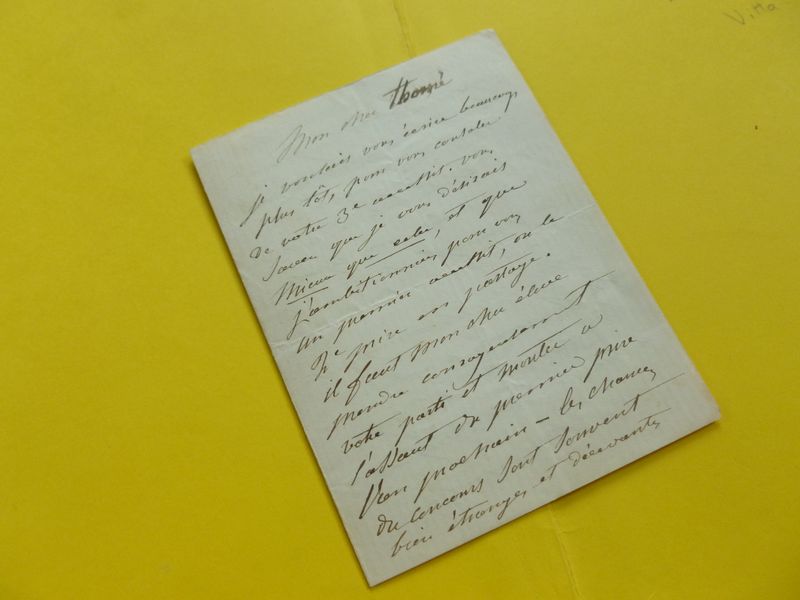 Vitta
Mon cher Thomé
je voulais vous écrire beaucoup
plus tôt, pour vous consoler
de votre 3e accessit. vous
savez que je vous désirais
Mieux que cela, et que
j'ambitionnais pour vous
un premier accessit, ou le
2e prix en partage.
il faut mon cher élève
prendre courageusement
votre parti et monter a
l'assaut du premier prix
l'an prochain – les chances
du concours sont souvent
bien étranges et décevantes